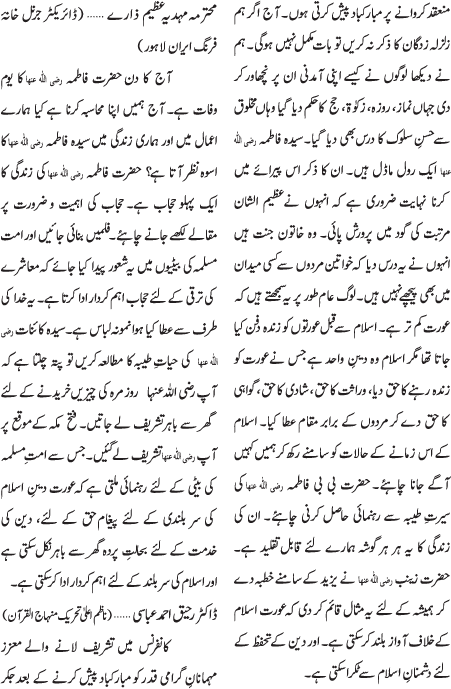 منعقد کروانے پر مبارکباد پیش کرتی ہوں۔ آج اگر ہم
زلزلہ زدگان کا ذکر نہ کریں تو بات مکمل نہیں ہوگی۔ ہم
نے دیکھا لوگوں نے کیسے اپنی آمدنی ان پر نچھاور کر
دی جہاں نماز، روزہ، زکوٰۃ، حج کا حکم دیا گیا وہاں مخلوق
سے حسن سلوک کا درس بھی دیا گیا۔ سیدہ فاطمہ رضی اللہ
عنہا ایک رول ماڈل ہیں۔ ان کا ذکر اس پیرائے میں
کرنا نہایت ضروری ہے کہ انہوں نے عظیم الشان
مرتبت کی گود میں پرورش پائی۔ وہ خاتون جنت ہیں
انہوں نے یہ درس دیا کہ خواتین مردوں سے کسی میدان
میں بھی پیچھے نہیں ہیں۔ لوگ عام طور پر یہ سمجھتے ہیں کہ
عورت کم تر ہے۔ اسلام سے قبل عورتوں کو زندہ دفن کیا
جاتا تھا مگر اسلام وہ دین واحد ہے جس نے عورت کو
زندہ رہنے کا حق دیا، وراثت کا حق، شادی کا حق، گواہی
کا حق دے کر مردوں کے برابر مقام عطا کیا۔ اسلام
کے اس زمانے کے حالات کو سامنے رکھ کر ہمیں کہیں
آگے جانا چاہئے۔ حضرت بی بی فاطمہ رضی اللہ عنہا کی
سیرتِ طیبہ سے رہنمائی حاصل کرنی چاہئے۔ ان کی
زندگی کا یہ ہر ہر گوشہ ہمارے لئے قابل تقلید ہے۔
حضرت زینب رضی اللہ عنہا نے یزید کے سامنے خطبہ دے
کر ہمیشہ کے لئے یہ مثال قائم کر دی کہ عورت اسلام
کے خلاف آواز بلند کرسکتی ہے۔ اور دین کے تحفظ کے
لئے دشمنانِ اسلام سے ٹکرا سکتی ہے۔
محترمہ مہدیہ عظیم ذارے ...... (ڈائریکٹر جنرل خانہ
فرنگ ایران لاہور)
آج کا دن حضرت فاطمہ رضی اللہ عنہا کا یوم
وفات ہے۔ آج ہمیں اپنا محاسبہ کرنا ہے کیا ہمارے
اعمال میں اور ہماری زندگی میں سیدہ فاطمہ رضی اللہ عنہا کا
اسوہ نظر آتا ہے؟ حضرت فاطمہ رضی اللہ عنہا کی زندگی کا
ایک پہلو حجاب ہے۔ حجاب کی اہمیت و ضرورت پر
مقالے لکھے جانے چاہئے۔ فلمیں بنائی جائیں اور امت
مسلمہ کی بیٹیوں میں یہ شعور پیدا کیا جائے کہ معاشرے
کی ترقی کے لئے حجاب اہم کردار ادا کرتا ہے۔ یہ خدا کی
طرف سے عطا کیا ہوا نمونہ لباس ہے۔ سیدہ کائنات رضی
اللہ عنہا کی حیاتِ طیبہ کا مطالعہ کریں تو پتہ چلتا ہے کہ
آپ رضی اللہ عنہا روز مرہ کی چیزیں خریدنے کے لئے
گھر سے باہر تشریف لے جاتیں۔ فتح مکہ کے موقع پر
آپ رضی اللہ عنہا تشریف لے گئیں۔ جس سے امتِ مسلمہ
کی بیٹی کے لئے رہنمائی ملتی ہے کہ عورت دینِ اسلام
کی سر بلندی کے لئے پیغام حق کے لئے، دین کی
خدمت کے لئے بحالتِ پردہ گھر سے باہر نکل سکتی ہے
اور اسلام کی سر بلند کے لئے اہم کردار ادا کرسکتی ہے۔
ڈاکٹر رحیق احمد عباسی ...... (ناظم اعلیٰ تحریک منہاج القرآن)
کانفرنس میں تشریف لانے والے معزز
مہمانانِ گرامی قدر کو مبارکباد پیش کرنے کے بعد جگر